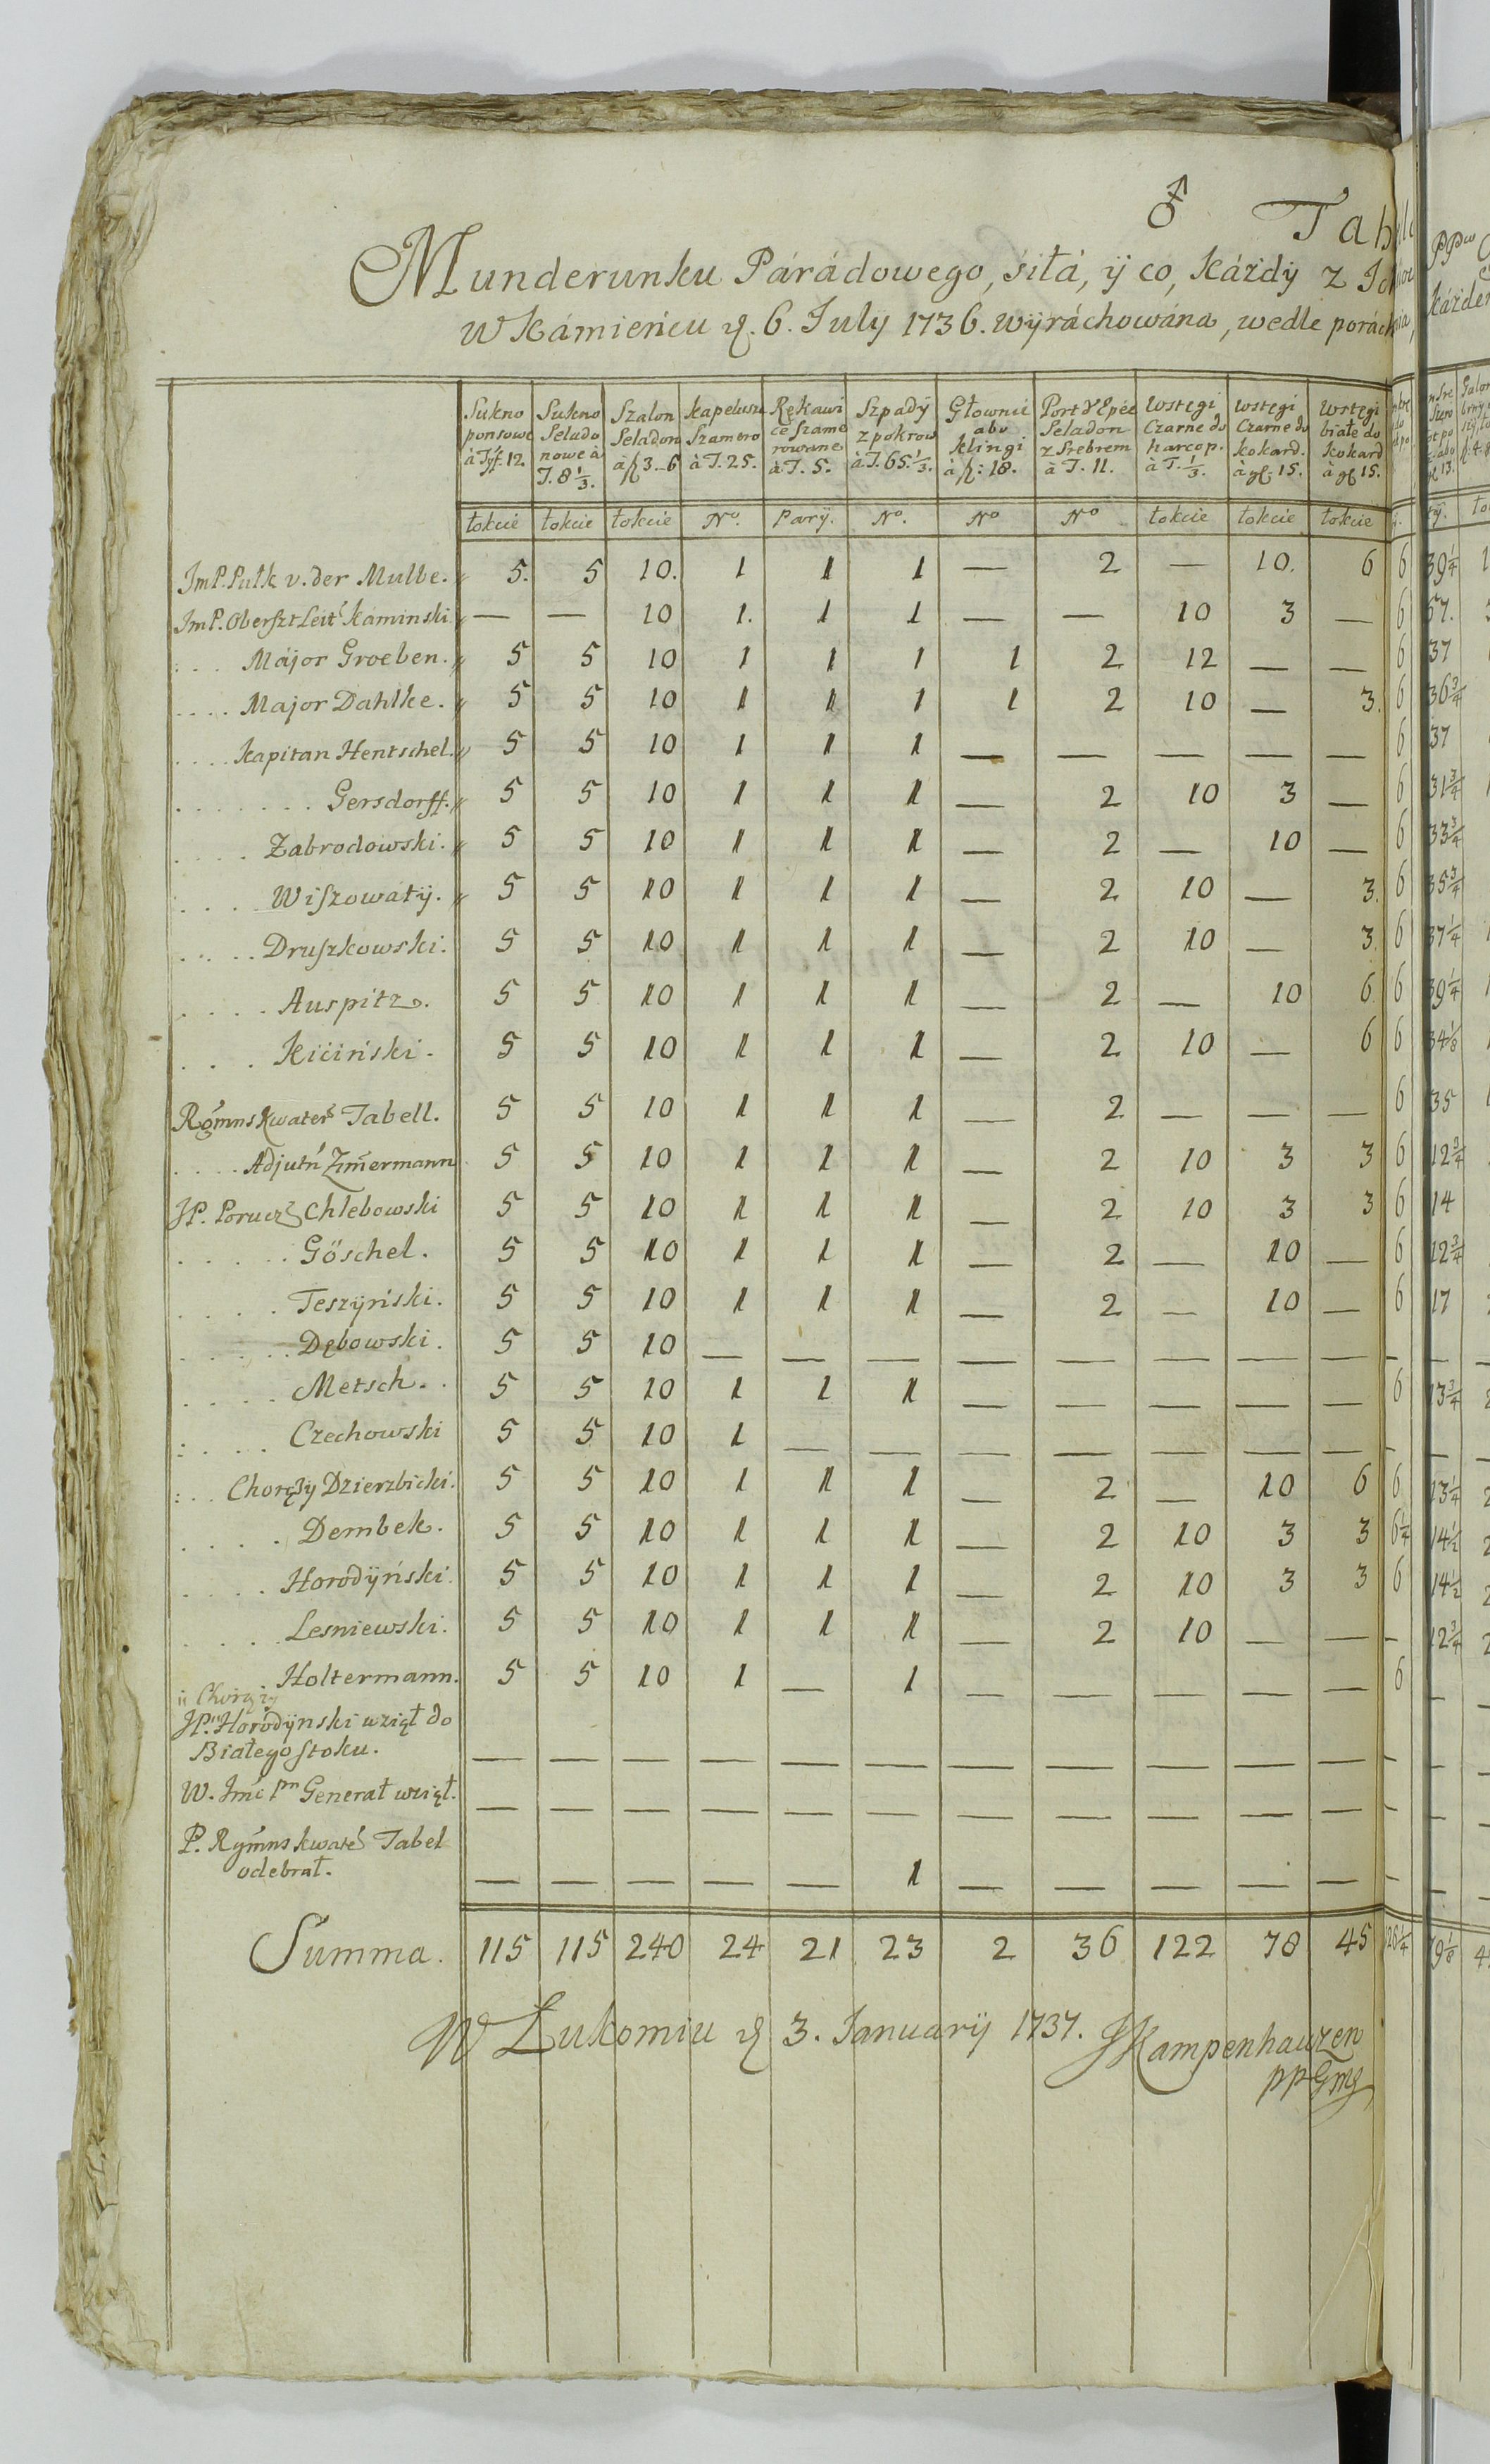 ♂ Tab
Munderunku Párádowego, siłá, ÿ co, Káżdÿ z
W Kámieńcu d. 6. July 1736. wÿráchowána, wedle porách
Sukno ponsowe à Tyff. 12. | Sukno Selado nowe à T. 8 1/3. | Szalon Seladon à fl 3..6 | kapelusz Szamero à T. 25. | Rękawi ce szame rowane à T. 5. | Szpadÿ z pokrow à T. 65 1/3. | Głownie abo klingi à fl: 18. | Port d'Epée Seladon z Srebrem à T. 11. | Wstęgi Czarne do harcop. à T. 1/3. | Wstęgi Czarne do kokard. à gl. 15. | Wstęgi białe do kokard à gl 15.
łokcie | łokcie | łokcie | No. | Parÿ. | No. | No | No | łokcie | łokcie | łokcie
JmP. Pułk v. der Mulbe. 5. 5 10. 1 1 1 — 2 — 10. 6 6 39 1/4
JmP. Oberszt Leit Kaminski — — 10 1. 1 1 — — 10 3 — 6 37.
. . . Májor Groeben. 5 5 10 1 1 1 1 2 12 — — 6 37
. . . . Major Dahlke. 5 5 10 1 1 1 1 2 10 — 3. 6 36 3/4
. . . . Kapitan Hentschel. 5 5 10 1 1 1 — — — — — 6 37
. . . . . . . Gersdorff. 5 5 10 1 1 1 — 2 10 3 — 6 31 3/4
. . . . Zabrodowski. 5 5 10 1 1 1 — 2 — 10 — 6 33 3/4
. . . Wiszowatÿ. 5 5 10 1 1 1 — 2 10 — 3. 6 35 3/4
. . . . Druszkowski. 5 5 10 1 1 1 — 2 10 — 3. 6 37 1/4
. . . . Auspitz. 5 5 10 1 1 1 — 2 — 10 6 6 39 1/4
. . . Kiciński. 5 5 10 1 1 1 — 2 10 — 6 6 34 1/8
Rgmns Kwater Tabell. 5 5 10 1 1 1 — 2 — — — 6 35
. . . . Adjutń Zm̃ermann 5 5 10 1 1 1 — 2 10 3 3 6 12 3/4
JP. Porucz Chlebowski 5 5 10 1 1 1 — 2 10 3 3 6 14
. . . . . Göschel. 5 5 10 1 1 1 — 2 — 10 — 6 12 3/4
. . . . Teszÿński. 5 5 10 1 1 1 — 2 — 10 — 6 17
. . . . . Dębowski. 5 5 10 — — — — — — — — — —
. . . . Metsch. . 5 5 10 1 1 1 — — — — — 6 13 3/4
. . . . Czechowski 5 5 10 1 — — — — — — — — —
. . . Chorążÿ Dzierzbicki. 5 5 10 1 1 1 — 2 — 10 6 6 13 1/4
. . . . Dembek. 5 5 10 1 1 1 — 2 10 3 3 6 1/4 14 1/2
. . . . Horodÿński. 5 5 10 1 1 1 — 2 10 3 3 6 14 1/2
. . . . Lesniewski. 5 5 10 1 1 1 — 2 10 — — — 12 3/4
Holtermann. 5 5 10 1 — 1 — — — — — 6 —
ii Chorązy
JP. Horodÿnski wziął do
Białegostoku. — — — — — — — — — — — — —
W. Jmć Pn Generał wziął. — — — — — — — — — — — — —
P. Rgmns kwater Tabel
odebrał. — — — — — 1 — — — — — — —
Summa. 115 115 240 24 21 23 2 36 122 78 45
W Łukomiu d 3. Januarÿ 1737. JKampenhauzen
ppGmj